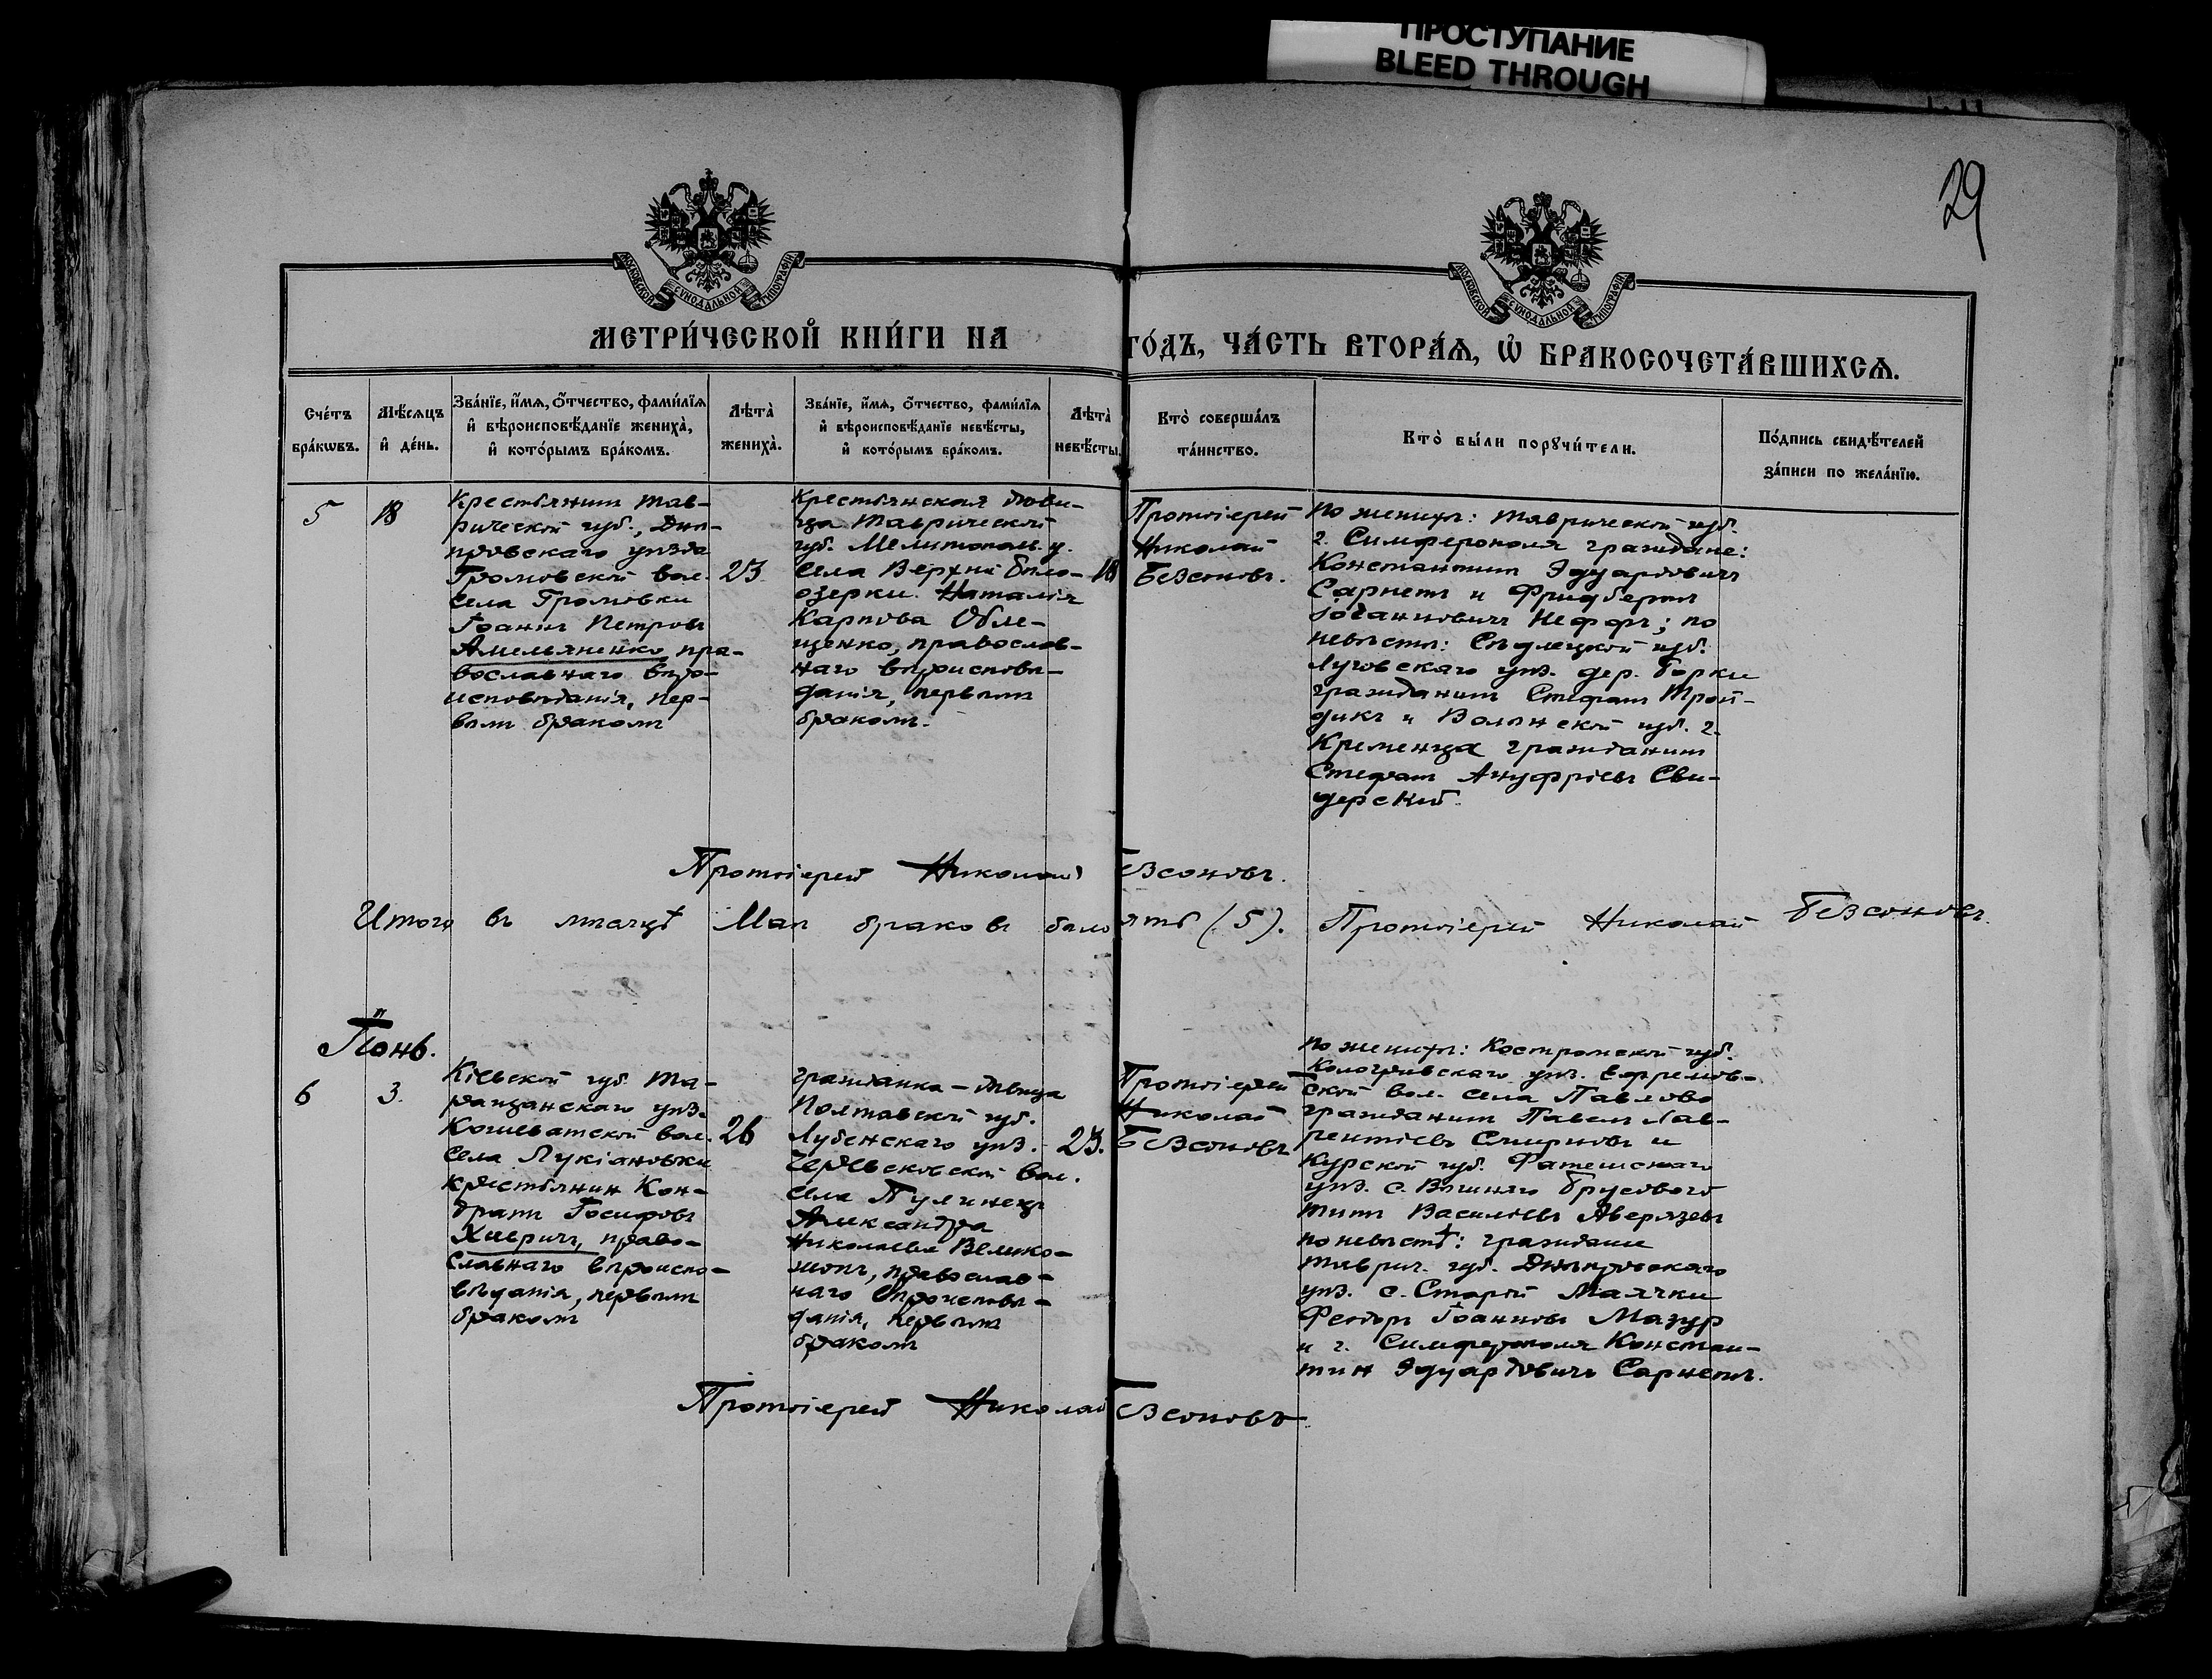 ПРОСТУПАНИЕ
BLEED THROUGH
29
МОСКОВСКОЙ СѴНОДАЛЬНОЙ ТИПОГРАФІИ
МОСКОВСКОЙ СѴНОДАЛЬНОЙ ТИПОГРАФІИ
МЕТРИ́ЧЕСКОЙ КНИ́ГИ НА ГО́ДЪ, ЧА́СТЬ ВТОРА́Ѧ, Ѡ҆ БРАКОСОЧЕТА́ВШИХСѦ.
Сче́тъ
бра́кѡвъ.
Мѣ́сѧцъ
и҆ де́нь.
Зва́нїе, и҆́мѧ, о҆́тчество, фами́лїѧ
и҆ вѣроисповѣ́данїе жениха̀,
и҆ кото́рымъ бра́комъ.
Лѣта̀
жениха̀.
Зва́нїе, и҆́мѧ, о҆́тчество, фами́лїѧ
и҆ вѣроисповѣ́данїе невѣ́сты,
и҆ кото́рымъ бра́комъ.
Лѣта̀
невѣ́сты.
Кто̀ соверша́лъ
та́инство.
Кто̀ бы́ли порꙋчи́тели.
По́дпись свидѣ́телей
за́писи по жела́нїю.
5
18
Крестьянинъ Тав-
рической губ., Днѣ-
провскаго уѣзда
Громовской вол.
села Громовки
Іоаннъ Петровъ
Амельяненко, пра-
вославнаго вѣро-
исповѣданія, пер-
вымъ бракомъ
23
Крестьянская дѣви-
ца Таврической
губ. Мелитополь. у.
села Верхній Бѣло-
озерки Наталія
Карпова Обле-
щенко, православ-
наго вѣроисповѣ-
данія, первымъ
бракомъ.
18
Протоіерей
Николай
Безсоновъ.
По женихѣ: Таврической губ.
г. Симферополя граждане:
Константинъ Эдуардовичъ
Сарнетъ и Фридбертъ
Іоганновичъ Неффъ; по
невѣстѣ: Сѣдлецкой губ.
Луковскаго уѣз. дер. Борки
гражданинъ Стефанъ Трой-
дикъ и Волынской губ. г.
Кременца гражданинъ
Стефанъ Ануфріевъ Сви-
дерскій.
Протоіерей Николай Безсоновъ.
Итого въ мѣсяцѣ Маѣ браковъ было пять (5). Протоіерей Николай Безсоновъ.
Іюнь.
6
3.
Кіевской губ. Та-
ращанскаго уѣз.
Кошеватской вол.
села Лукіановки
крестьянин Кон-
дратъ Іосифовъ
Хиеричъ, право-
славнаго вѣроиспо-
вѣданія, первымъ
бракомъ
26
Гражданка-дѣвица
Полтавской губ.
Лубенскаго уѣз.
села Пулинецъ
Александра
Николаевна Велико-
жонъ, православ-
наго вѣроисповѣ-
данія, первымъ
бракомъ
23.
Протоіерей
Николай
Безсоновъ
По женихѣ: Костромской губ.
Кологривскаго уѣз. Ефремов-
ской вол. села Павлово
гражданинъ Павелъ Лав-
рентіевъ Смирновъ и
Курской губ. Фатежскаго
уѣз. с. Брусового
Титъ Василіевъ Аверязевъ
по невѣстѣ: граждане
Таврич. губ. Днѣпровскаго
уѣз. с. Старой Маячки
Феодоръ Іоанновъ Мазур
и г. Симферополя Констан-
тин Эдуардовичъ Сарнетъ.
Протоіерей Николай Безсоновъ